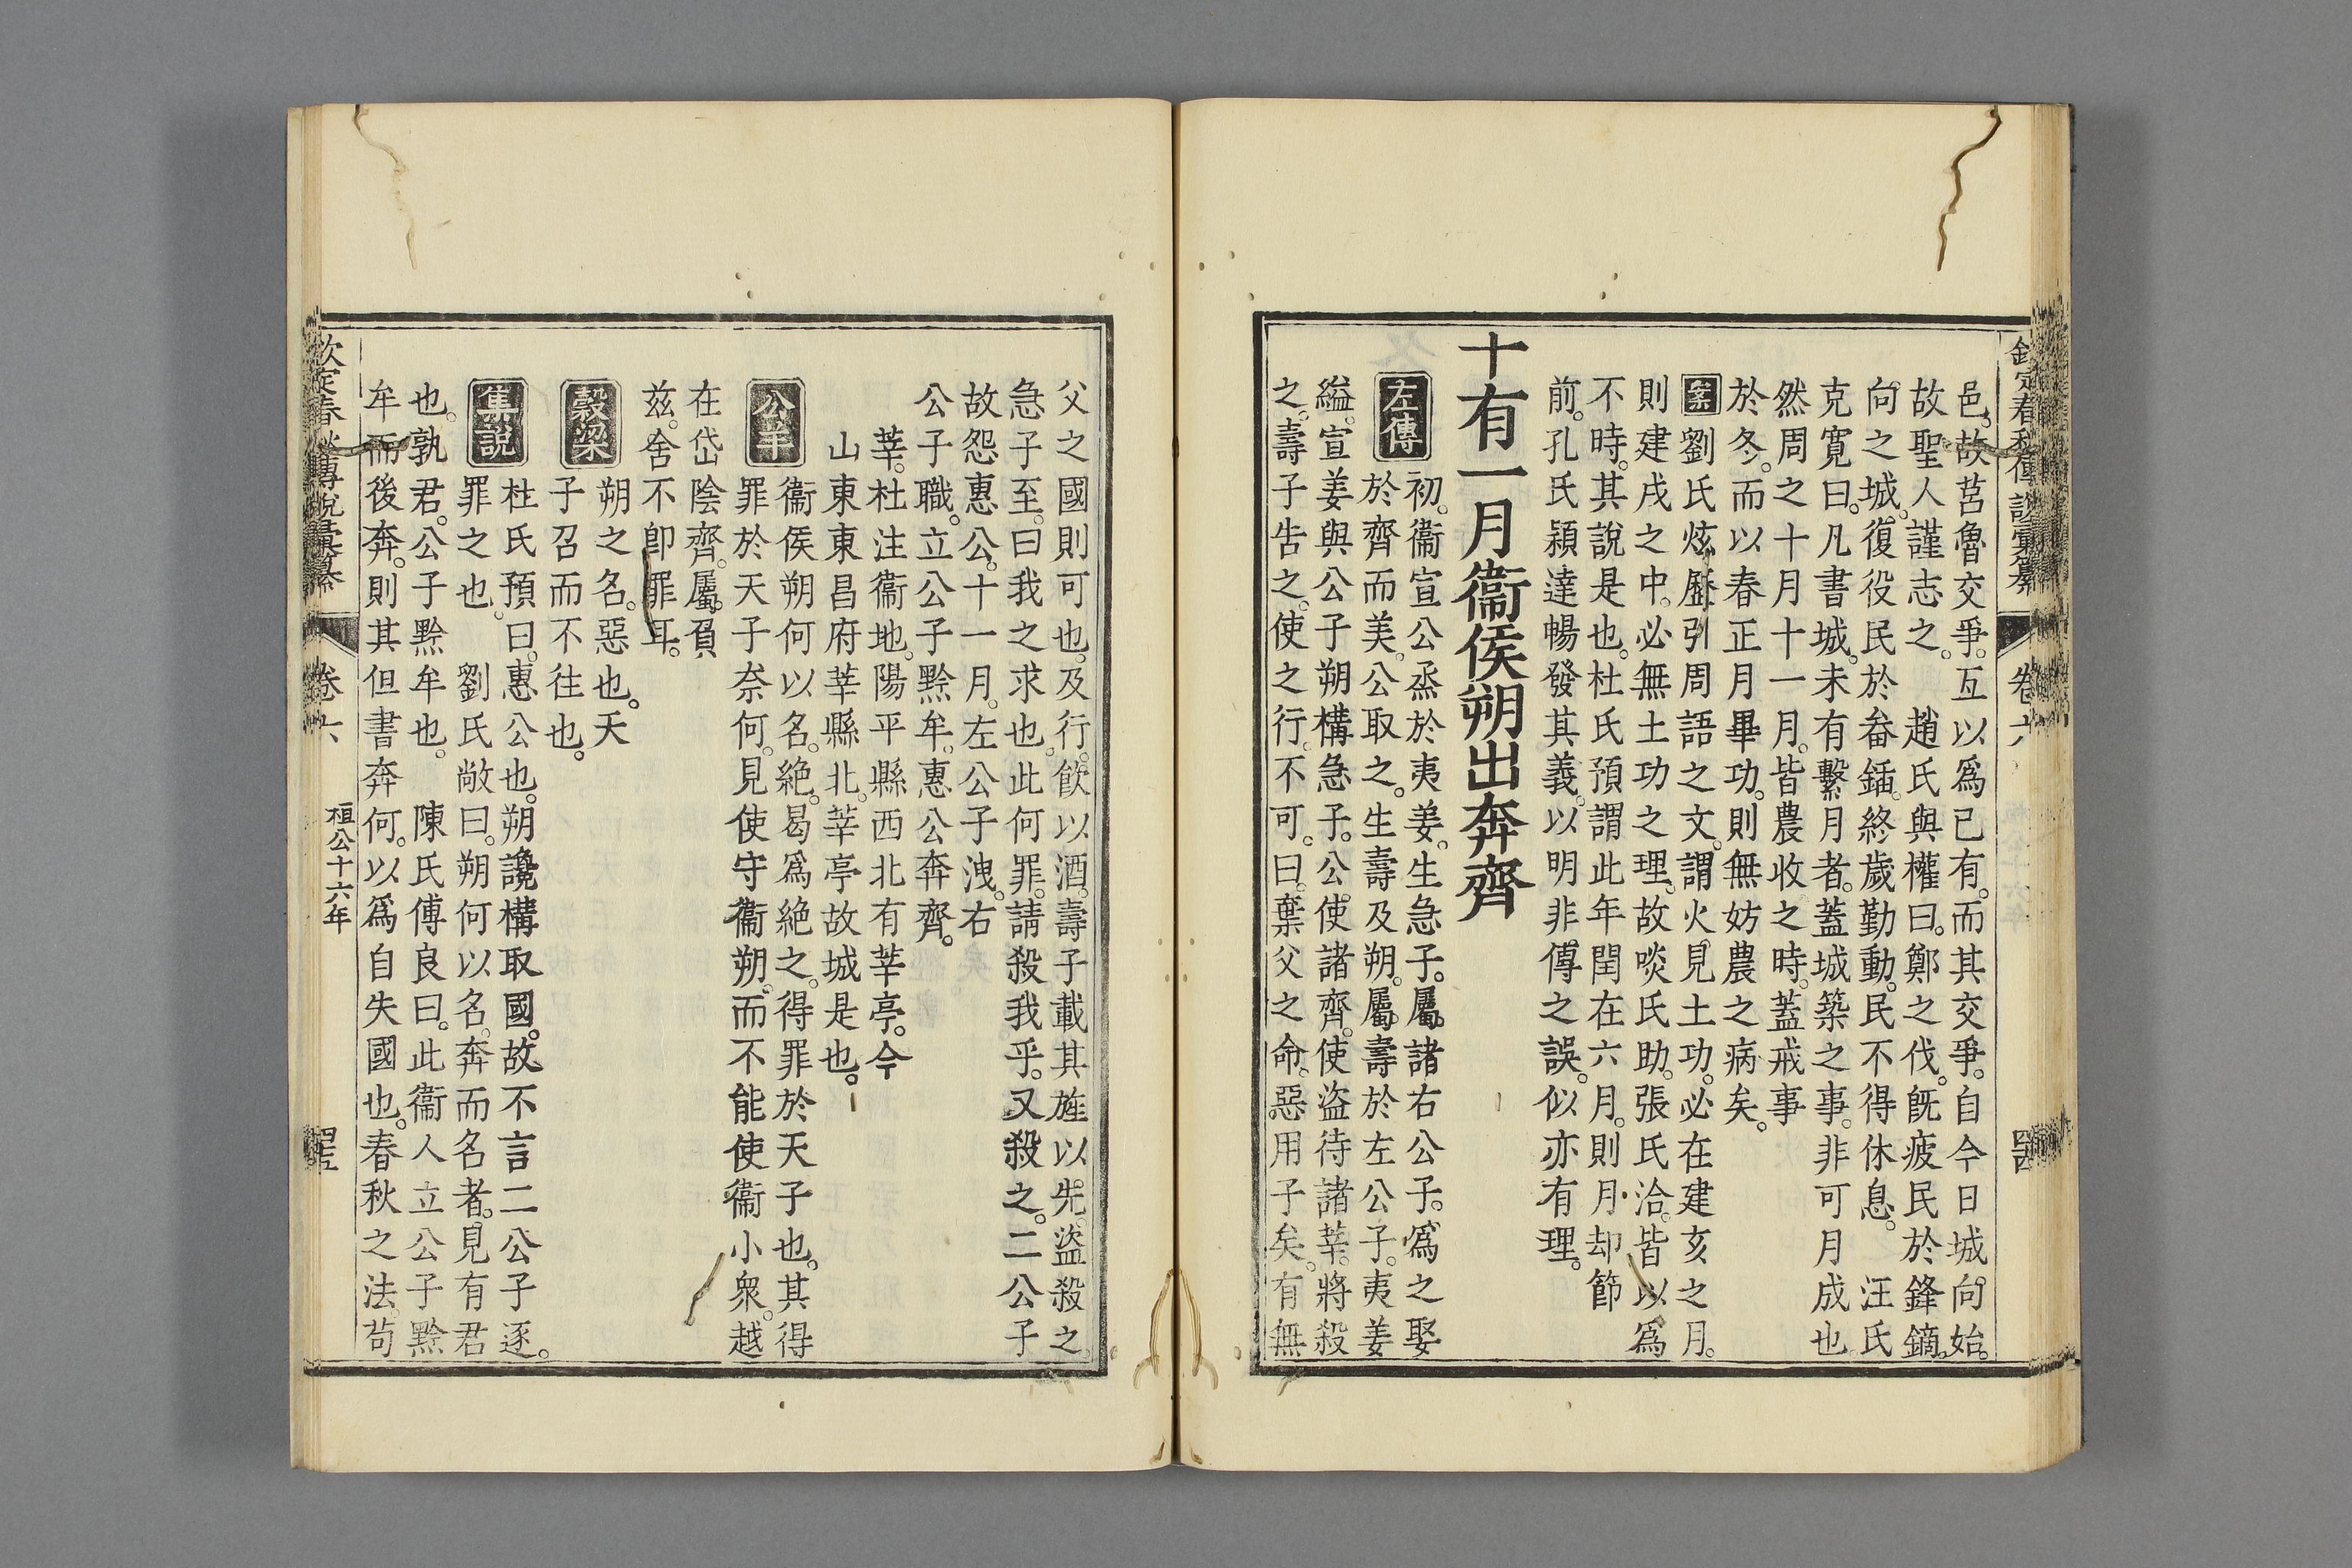 欽定春秋傳說彙纂 卷六 四十四
邑。故莒魯交爭。互以爲已有。而其交爭。自今日城向始。
故聖人謹志之。 趙氏與權曰。鄭之伐。旣疲民於鋒鏑。
向之城。復役民於畚鍤。終歲勤動。民不得休息。 汪氏
克寬曰。凡書城。未有繫月者。蓋城築之事。非可月成也
然周之十月十一月。皆農收之時。蓋戒事
於冬。而以春正月畢功。則無妨農之病矣。
案劉氏炫歷引周語之文。謂火見土功。必在建亥之月。
則建戌之中。必無土功之理。故啖氏助。張氏洽。皆以爲
不時。其說是也。杜氏預謂此年閏在六月。則月却節
前。孔氏穎達暢發其義。以明非傳之誤。似亦有理。
十有一月衞侯朔出奔齊
左傳 初。衞宣公烝於夷姜。生急子。屬諸右公子。爲之娶
於齊而美。公取之。生壽及朔。屬壽於左公子。夷姜
縊。宣姜與公子朔構急子。公使諸齊。使盜待諸莘。將殺
之。壽子告之。使之行。不可。曰。棄父之命。惡用子矣。有無
父之國則可也。及行。飮以酒。壽子載其旌以先。盜殺之。
急子至。曰我之求也。此何罪。請殺我乎。又殺之。二公子
故怨惠公。十一月。左公子洩。右
公子職。立公子黔牟。惠公奔齊。
莘。杜注衞地。陽平縣西北有莘亭。今
山東東昌府莘縣北。莘亭故城是也。
公羊 衞侯朔何以名。絶。曷爲絶之。得罪於天子也。其得
罪於天子奈何。見使守衞朔。而不能使衞小衆。越
在岱陰齊。屬負
茲。舍不卽罪耳。
穀梁 朔之名。惡也。天
子召而不往也。
集說 杜氏預曰。惠公也。朔讒構取國。故不言二公子逐。
罪之也。 劉氏敞曰。朔何以名。奔而名者。見有君
也。孰君。公子黔牟也。 陳氏傅良曰。此衞人立公子黔
牟而後奔。則其但書奔何。以爲自失國也。春秋之法。苟
欽定春秋傳說彙纂 卷六 桓公十六年 四十五